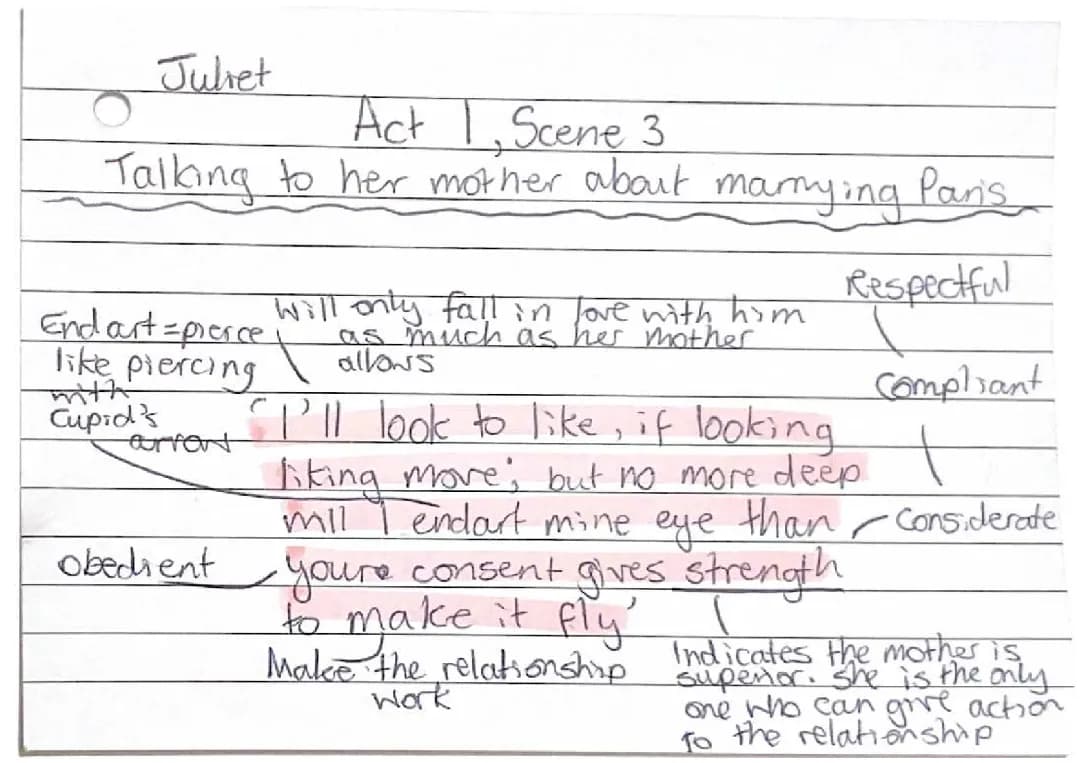 Juliet
Act 1, Scene 3
Talking to her mother about marrying Paris
Respectful
Will only fall in love with him
as much as her mother
allows
Endart = pierce
like piercing
with
Cupid's
arrow
Compliant
'I'll look to like, if looking
liking move; but no more deep
will I endart mine eye than
youre consent gives strength
to make it fly'
Considerate
obedient
Make the relationship
work
Indicates the mother is
superior. She is the only
one who can give action
To the relationship